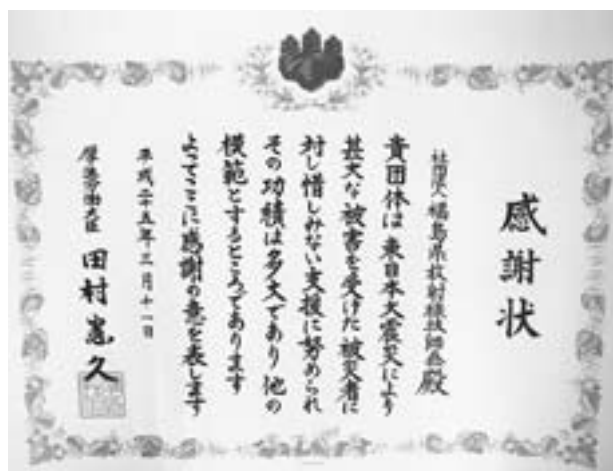 感謝状
社団法人福島県放射線技師会殿
貴団体は東日本大震災により
甚大な被害を受けた被災者に
対し惜しみない支援に努められ
その功績は多大であり他の
模範とするところであります
よってここに感謝の意を表します
平成二十五年三月十一日
厚生労働大臣 田村憲久